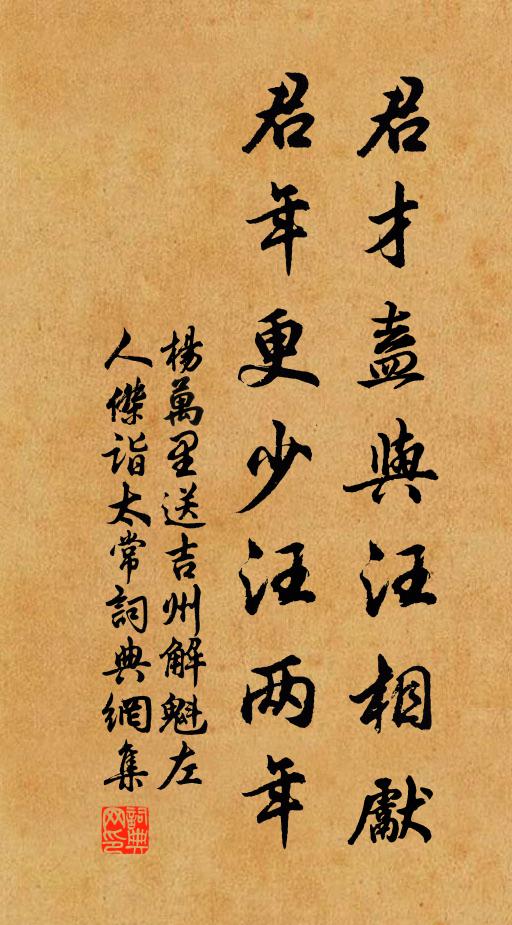 君才盍與汪相獻
君年更少汪两年
楊萬里送吉州解魁左
人傑詣太常詞典網集
詞典网印